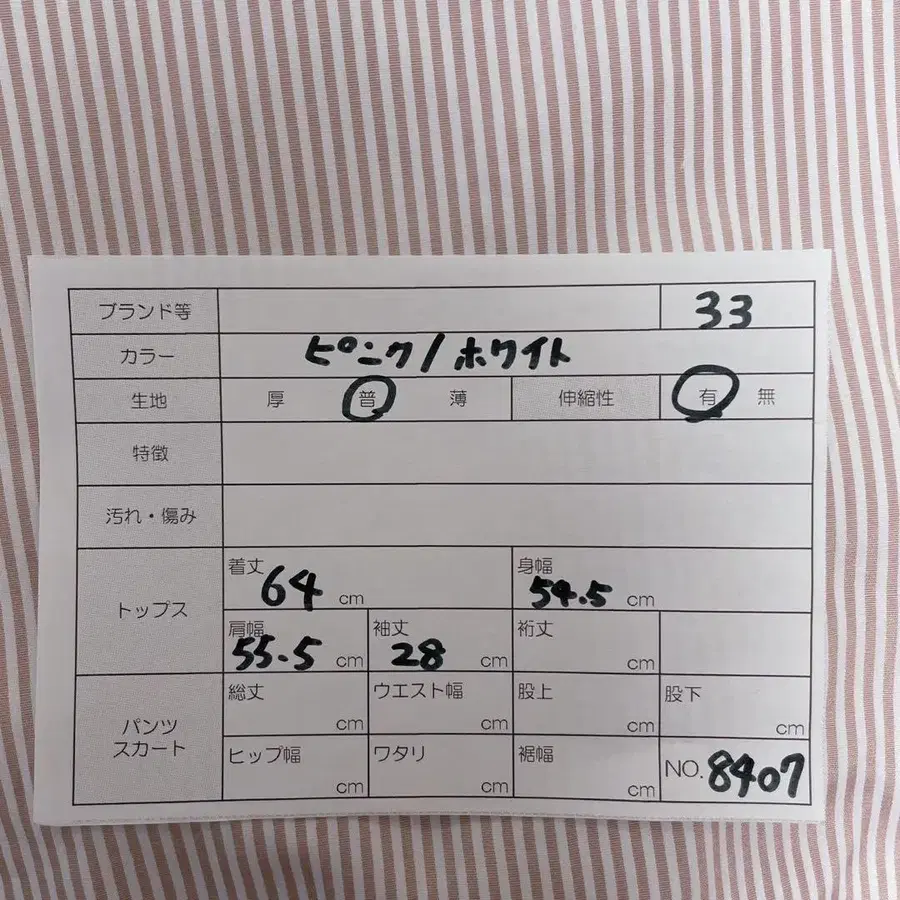 ブランド等 33
カラー ピンク/ホワイト
生地 厚 普 薄 伸縮性 有 無
特徴
汚れ・傷み
トップス
着丈 64 cm 身幅 54.5 cm
肩幅 55.5 cm 袖丈 28 cm 裄丈 cm
パンツ
スカート
総丈 cm ウエスト幅 cm 股上 cm 股下 cm
ヒップ幅 cm ワタリ cm 裾幅 cm NO. 8407